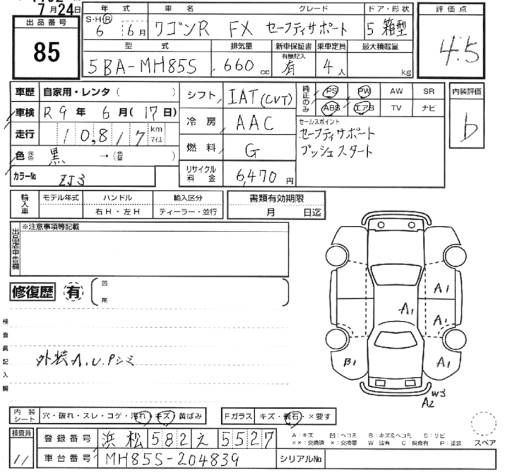 7月24日
出品番号
85
年式 車名 グレード ドア・形状
S・H・R 6 6月 ワゴンR FX セーフティサポート 5 箱型
型式 排気量 新車保証書 乗車定員 最大積載量
有無記入
5BA-MH85S .660 cc 有 4人 kg
評価点
4.5
車歴 自家用・レンタ( )
車検 R9年6月(17日)
走行 10,817 km マイル
色 黒
カラーNo ZJ3
シフト IAT(CVT)
冷房 AAC
燃料 G
リサイクル料金 6,470円
純正のみ PS PW AW SR
ABS エアB TV ナビ
セールスポイント
セーフティサポート
プッシュスタート
内装評価
b
輸入車 モデル年式 ハンドル 輸入区分
右H・左H ディーラー・並行
書類有効期限
月 日迄
出品店申告欄
※注意事項等記載
修復歴 有
箇所
検査員記入欄
外装A.U.Pシミ
A1
A1
A1
A1
B1
W3
A2
内装シート 穴・破れ・スレ・コゲ・汚れ・キズ・黄ばみ
Fガラス キズ・飛石・×要す
検査員
11
登録番号 浜松582え5527
車台番号 MH85S-204839
シリアルNo
スペア